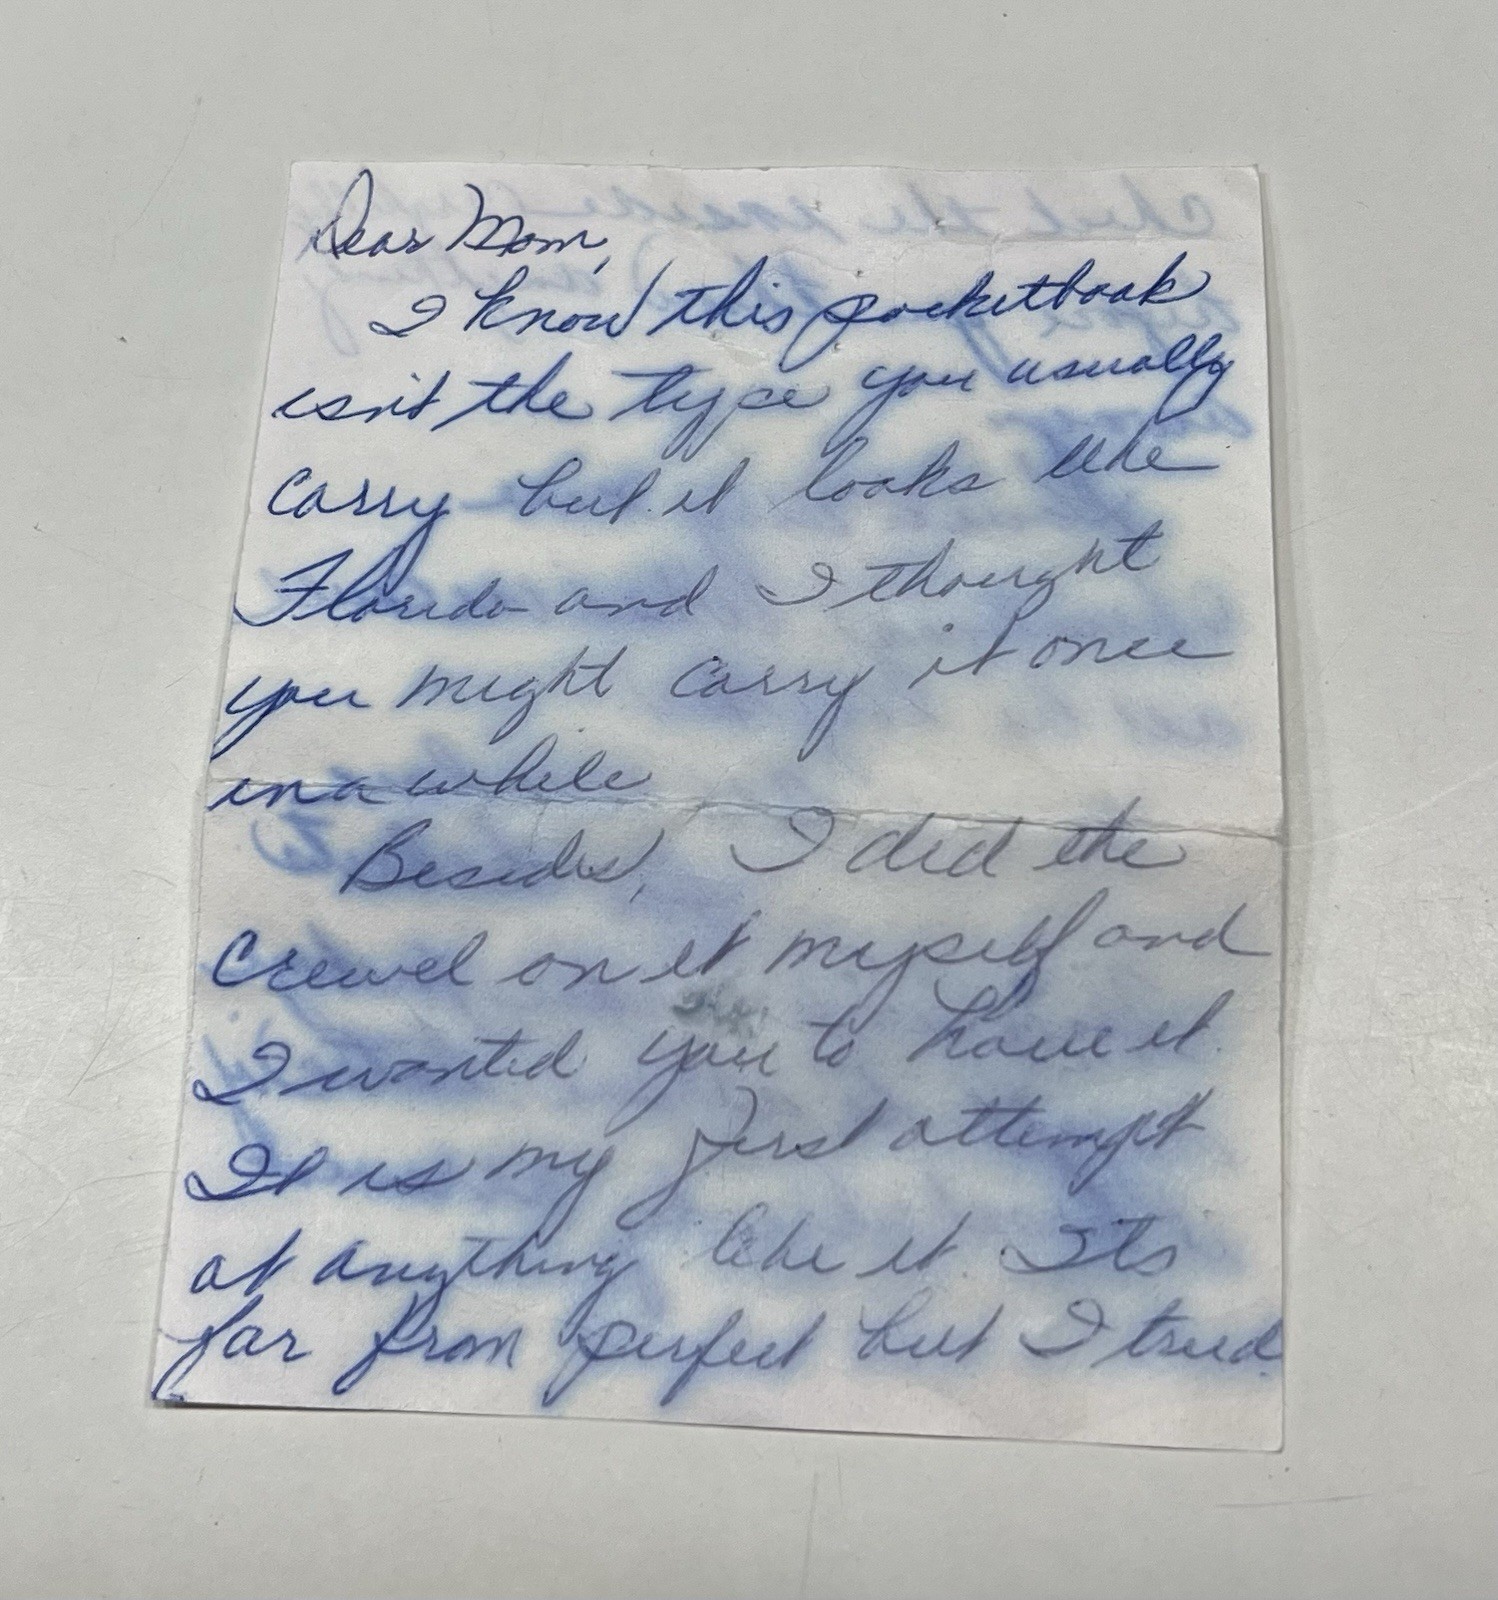 Dear Mom,
I know this pocketbook
isn't the type you usually
carry but it looks like
Florida and I thought
you might carry it once
in a while
Besides, I did the
Crewel on it myself and
I wanted you to have it.
It is my first attempt
at anything like it. Its
far from perfect but I tried.